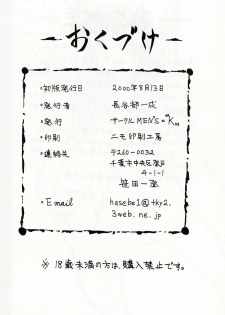 おくづけ
・初版発行日 2000年8月13日
・発行者 長谷部一成
・発行 サークルMEN'S"K"
・印刷 ニモ印刷工房
・連絡先 〒260-0032
千葉市中央区登戸
4-1-1
笹田一方
・Email hasebe1@tky2.
3web.ne.jp
※18歳未満の方は、購入禁止です。